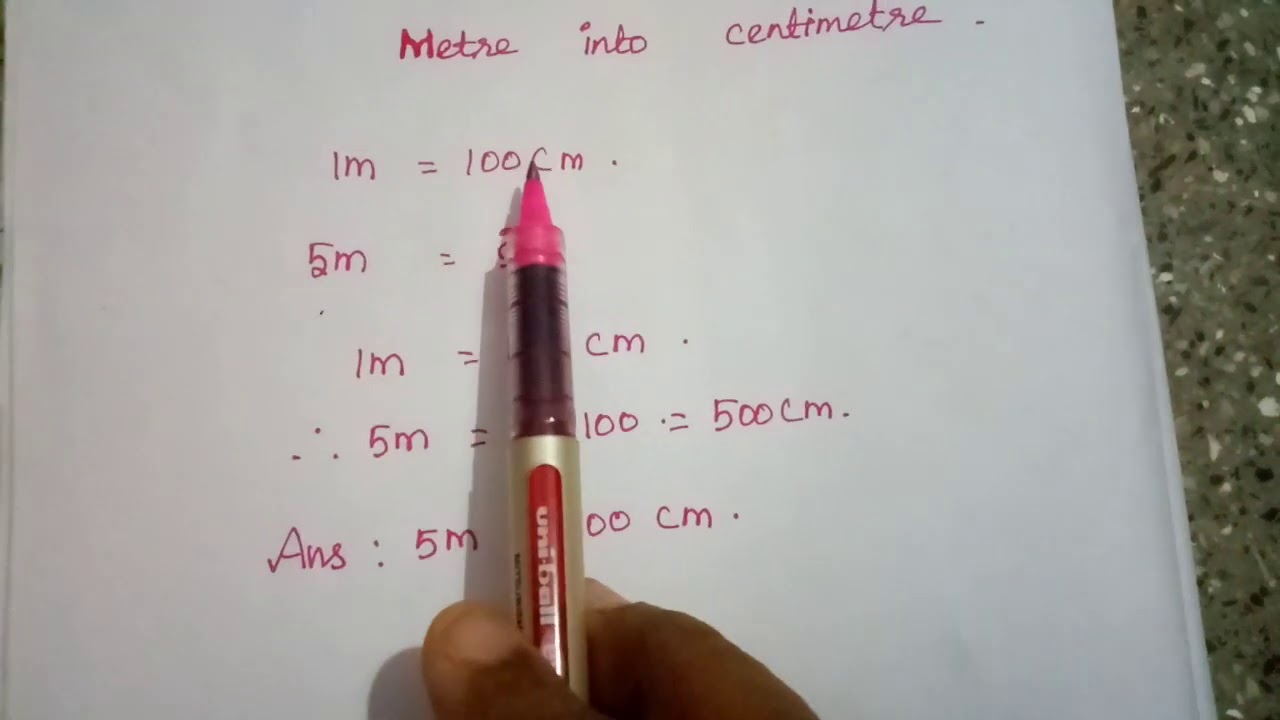 Metre into centimetre .
1m = 100cm .
5m =
1m = cm .
∴ 5m = 100 .= 500cm.
Ans : 5m 00 cm .
uni-ball